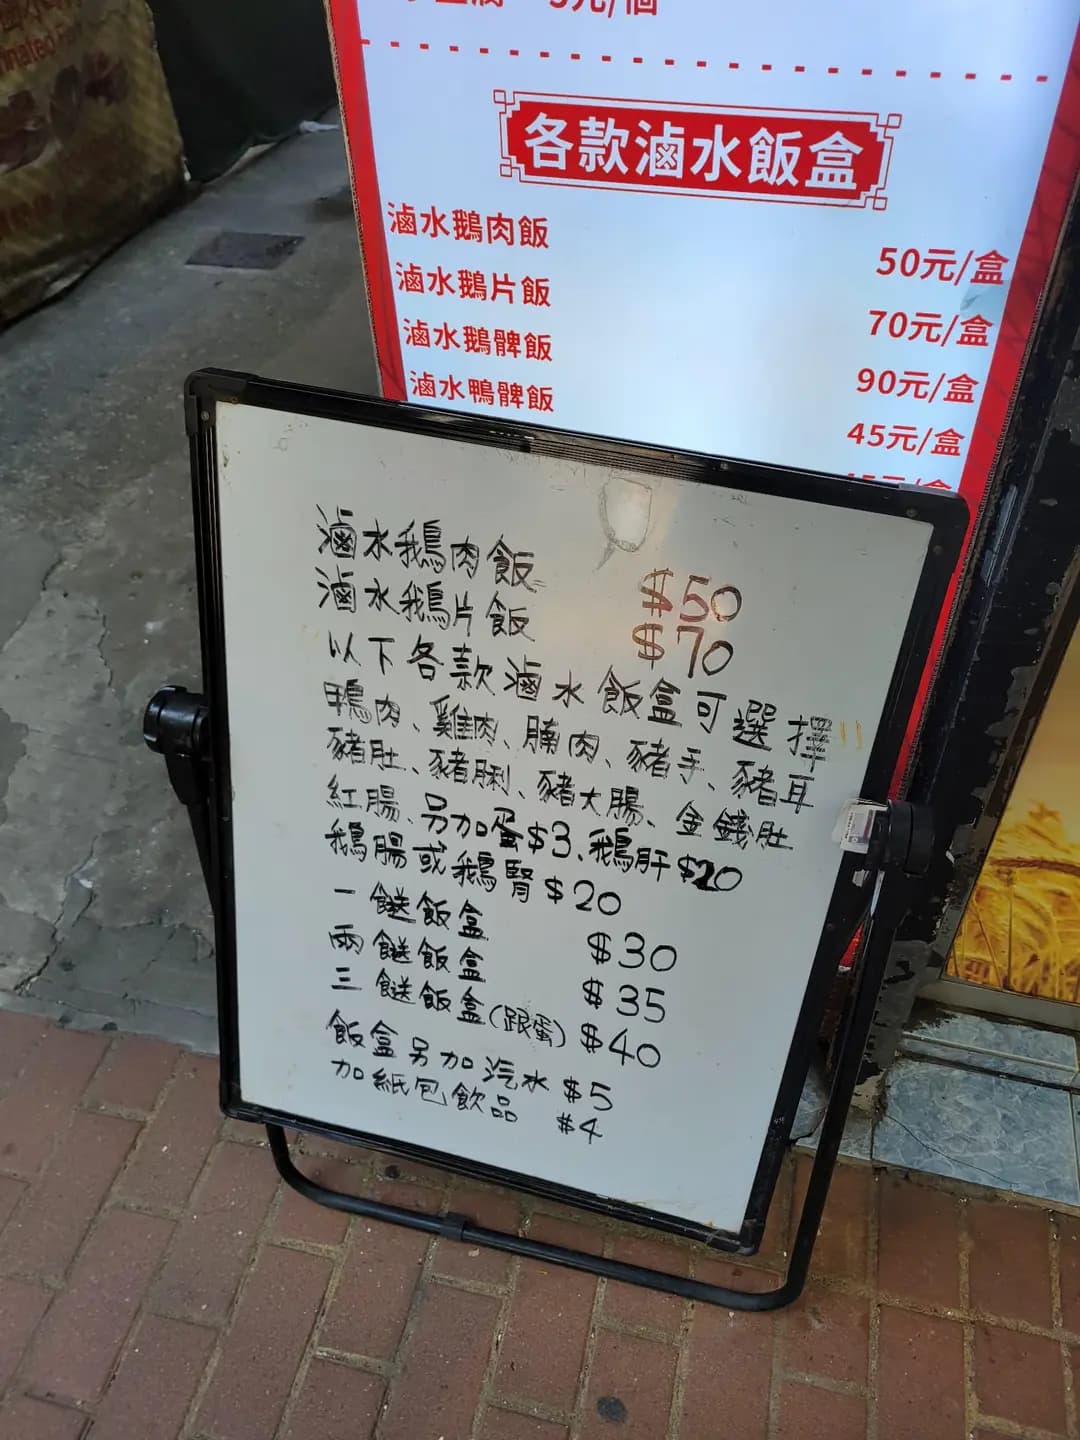 各款滷水飯盒
滷水鵝肉飯 50元/盒
滷水鵝片飯 70元/盒
滷水鵝髀飯 90元/盒
滷水鴨髀飯 45元/盒
滷水鵝肉飯 $50
滷水鵝片飯 $70
以下各款滷水飯盒可選擇
鴨肉、雞肉、腩肉、豬手、豬耳
豬肚、豬脷、豬大腸、金錢肚
紅腸、另加蛋$3、鵝肝$20
鵝腸或鵝腎$20
一餸飯盒 $30
兩餸飯盒 $35
三餸飯盒(跟蛋) $40
飯盒另加汽水 $5
加紙包飲品 $4